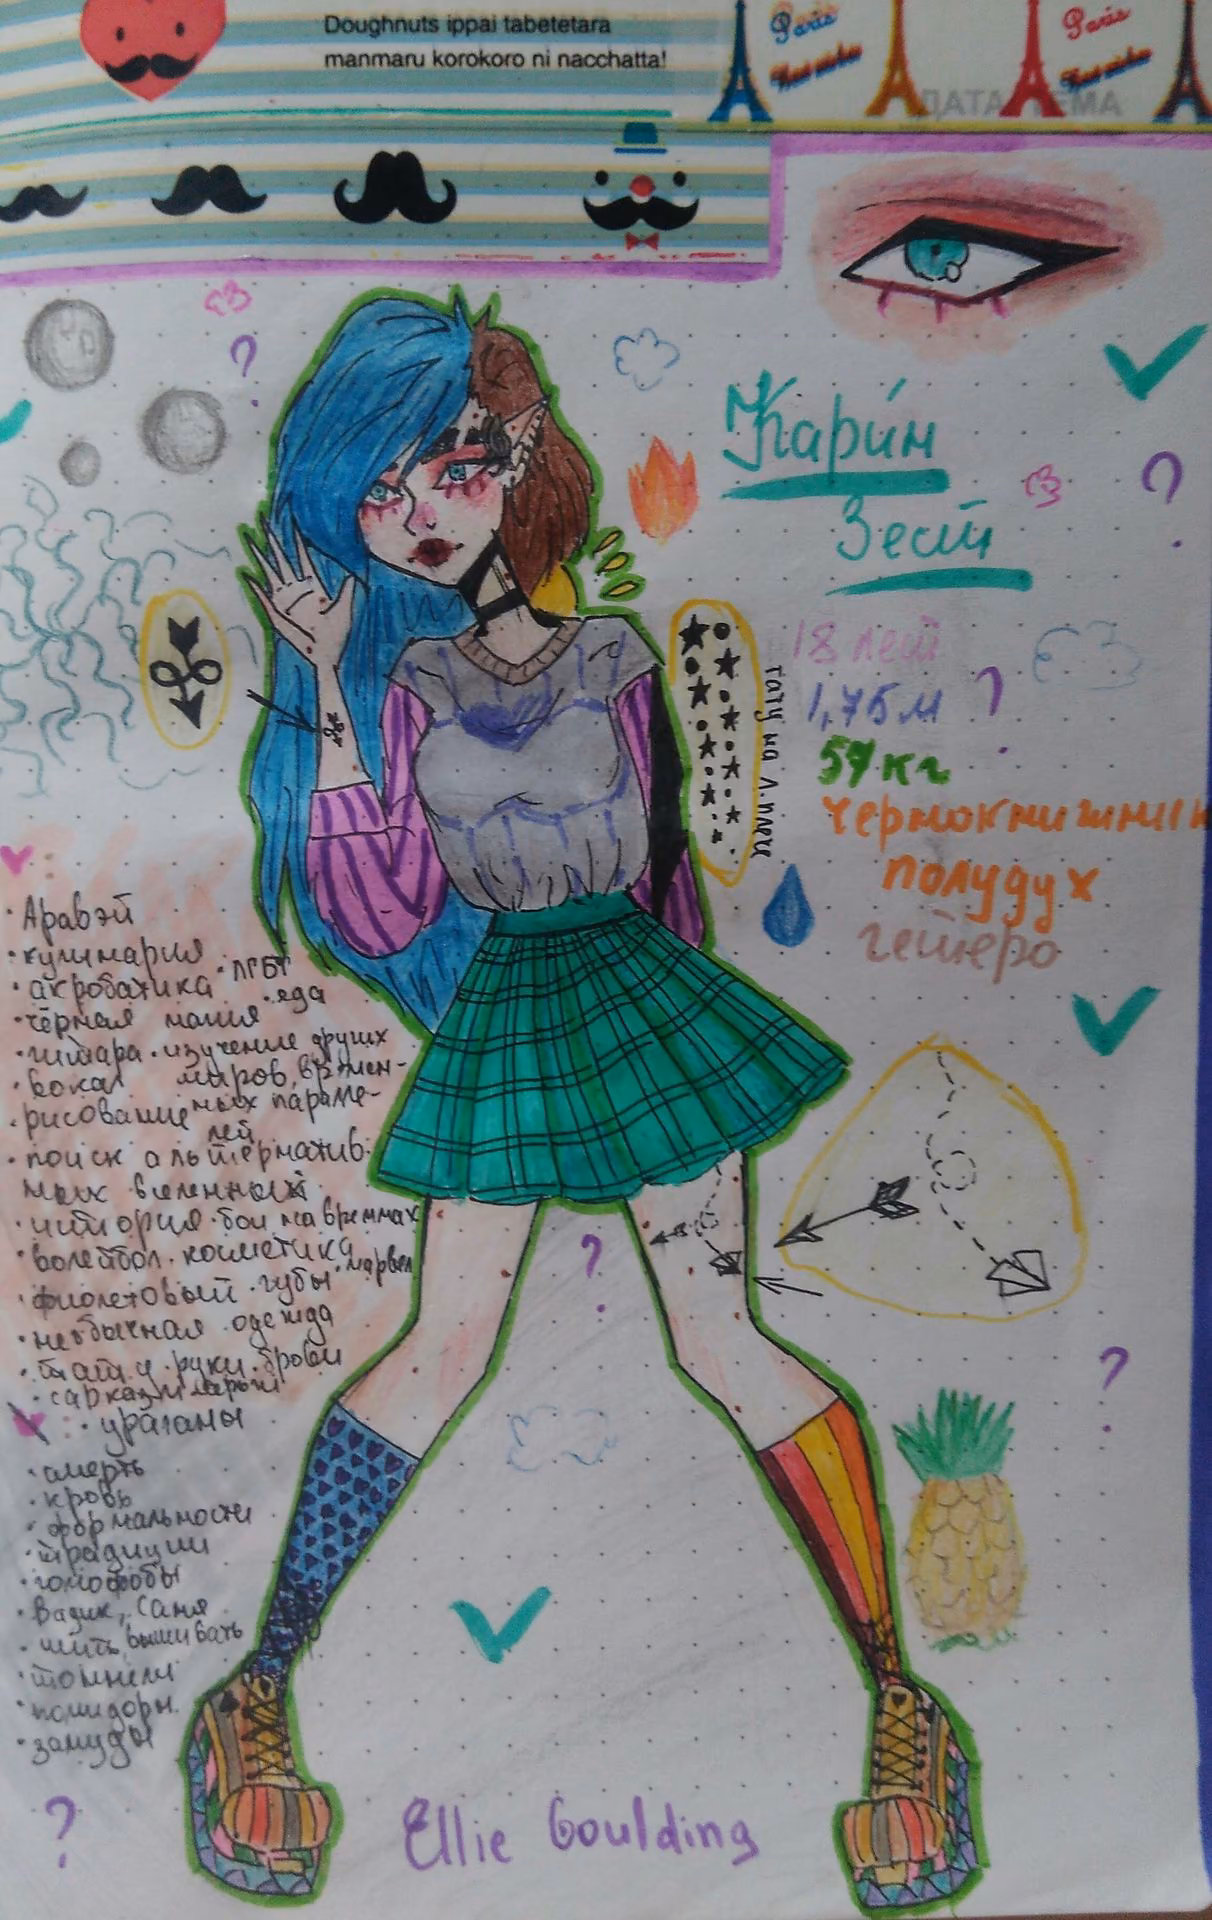 Doughnuts ippai tabetetara
manmaru korokoro ni nacchatta!
Paris
Paris
ДАТА ТЕМА
Карин
Зест
18 лет
1,75 м
57 кг
чернокнижник
полудух
гетеро
тату на л.плеч
· Аравэй
· кулинария
· акробатика · ЛГБТ
· чёрная магия · еда
· гитара · изучение других
· вокал миров, времен-
· рисование ных параме-
тей
· поиск альтернатив-
ных вселенных
· история · бои на
· волейбол · косметика · марвел
· фиолетовый · губы
· необычная одежда
· тату · руки · брови
· сарказм
· ураганы
· смерть
· кровь
· формальности
· традиции
· гомофобы
· Вадик, Саня
· шить, вышивать
· тоннели
· помидоры
· зануды
Ellie Goulding